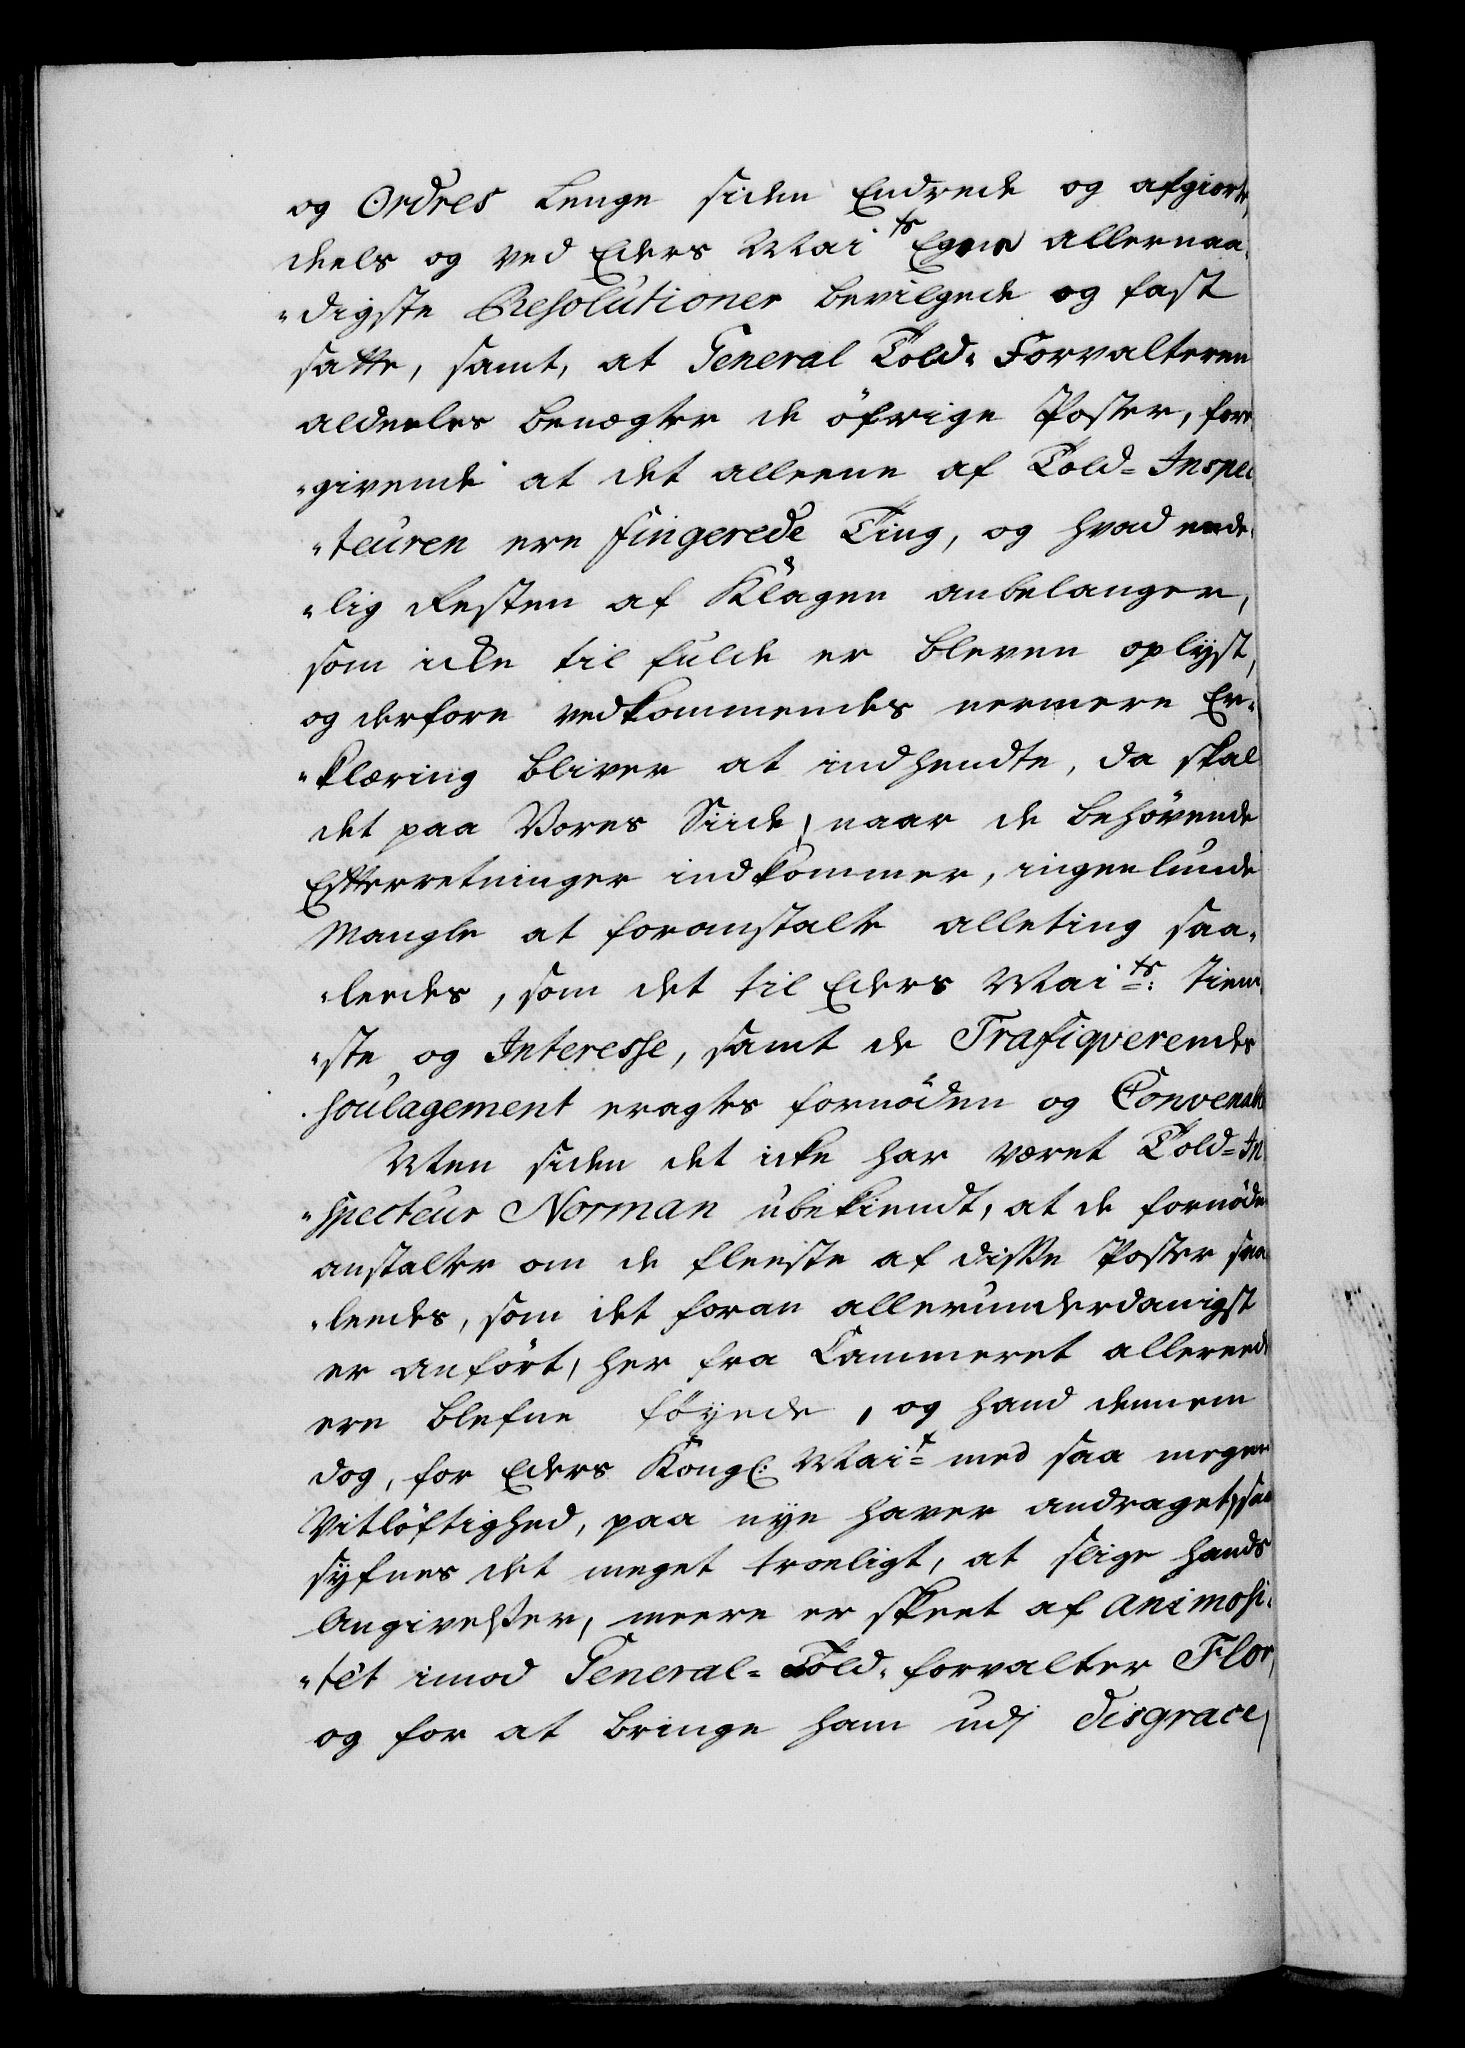 og Ordres lenge siden Endrede og afgiorte,
deels og ved Eders Maits Egne allernaa-
"digste Resolutioner bevilgede og fast
satte, samt, at General Told-Forvalteren
aldeeles benegter de öfrige Poster, fore
"givende at det alleene af Told-Inspec
"teuren ere fingerede Ting, og hvad ende-
"lig Resten af Klagen anbelanger,
som icke til fulde er bleven oplyst,
og derfore vedkommendes nermere Er-
"klæring bliver at indhendte, da skal
det paa Vores Siide, naar de behövende
Efterretninger indkommer, ingenlunde
Mangle at foranstalte alleting saa-
"leedes, som det til Eders Maits: Tiene
"ste og Interesse, samt de Trafiqverendes
soulagement eragtes fornöden og Convenable
Men siden det icke har været Told-In
"specteur Norman ubekiendt, at de fornödne
anstalter om de fleeste af disse Poster saa
"leedes, som det foran allerunderdanigst
er anfört, her fra Cammeret allereede
ere blefne föyede, og hand dennem
dog, for Eders Kongl: Mait med saa megen
Vitlöftighed, paa nye haver andraget, saa
syfnes det meget troeligt, at slige hands
Angivelser, meere er skeet af animosi-
"tét imod General-Told-forvalter Flor,
og for at bringe ham udj disgrace,